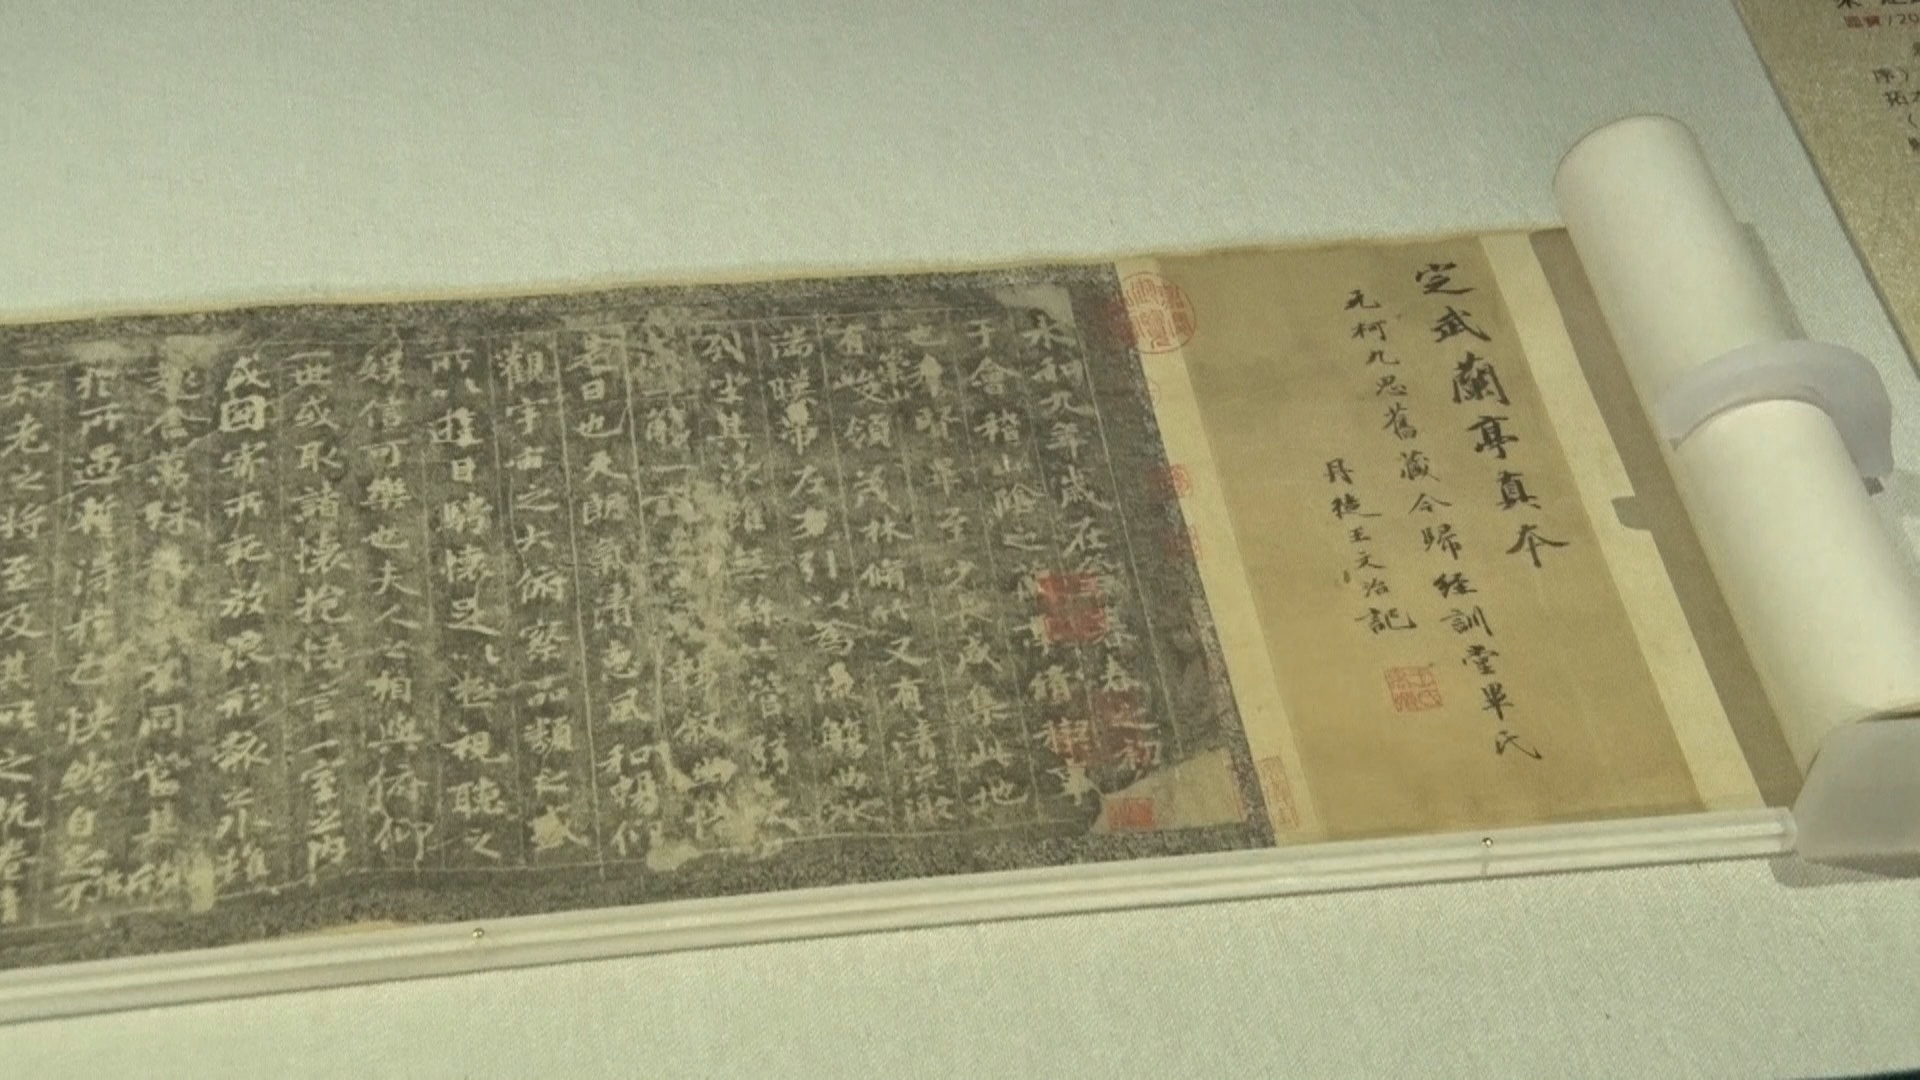 定武蘭亭真本
元柯九思舊藏今歸經訓堂畢氏
丹徒王文治記
永和九年歲在癸丑暮春之初
于會稽山陰之蘭亭脩禊事
也羣賢畢至少長咸集此地
有崇山峻領茂林脩竹又有清流激
湍暎帶左右引以為流觴曲水
列坐其次雖無絲竹管弦之
一觴一詠 暢敘幽情
是日也天朗氣清惠風和暢仰
觀宇宙之大俯察品類之盛
所以遊目騁懷足以極視聽之
娛信可樂也夫人之相與俯仰
一世或取諸懷抱悟言一室之內
或因寄所託放浪形骸之外雖
趣舍萬殊 不同當其欣
於所遇暫得於己快然自足不
知老之將至及其所之既惓情